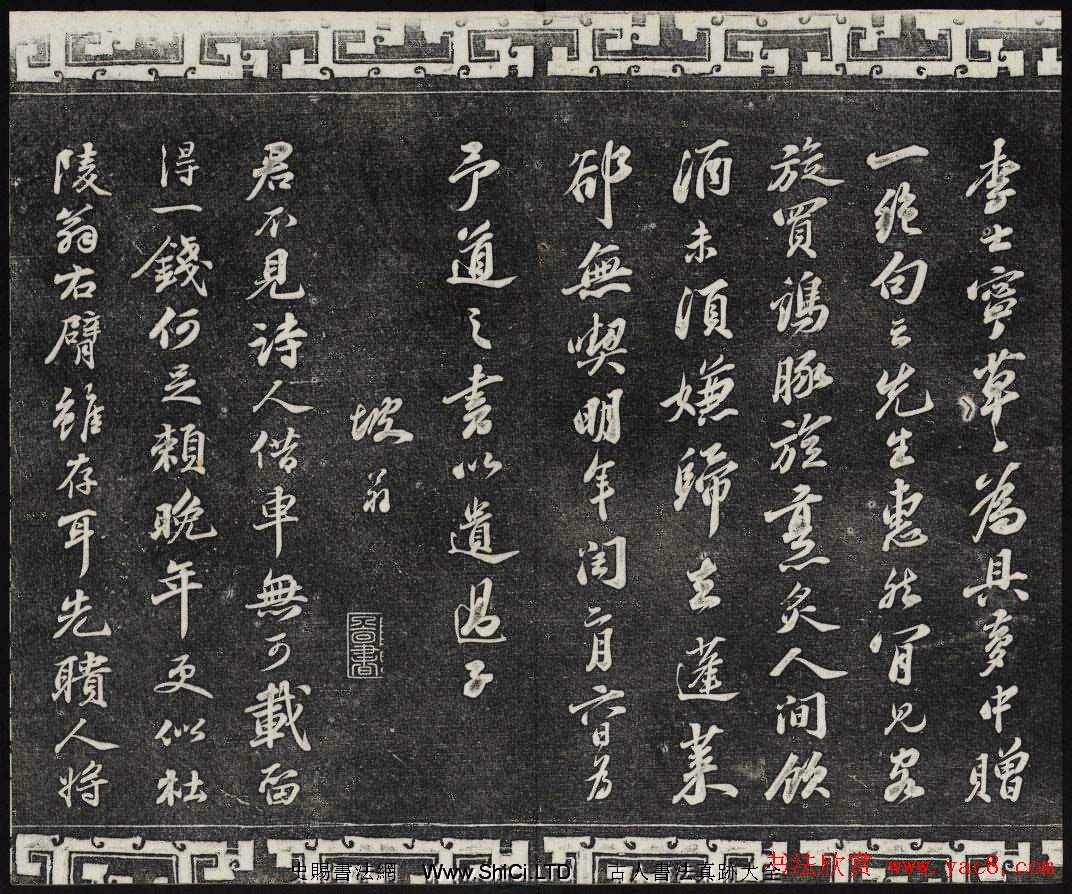 李士寧草草為具夢中贈
一絕句云先生惠然肯見客
旋買鷄豚旋烹炙人間飲
酒未須嫌歸去蓬萊
卻無喫明年閏二月六日為
予道之書以遺過子
坡翁
君不見詩人借車無可載留
得一錢何足賴晚年更似杜
陵翁右臂雖存耳先聵人將
史賜書法網 www.ShiCi.LTD 古人書法真跡大全
书法欣赏 www.yac8.com